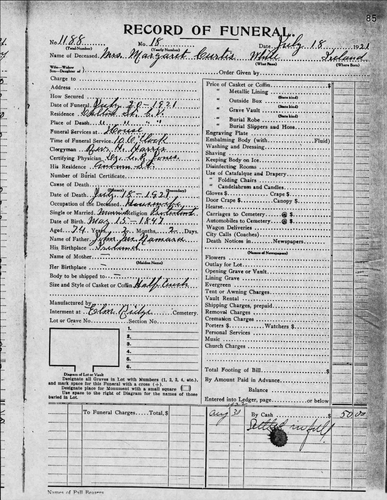 85
RECORD OF FUNERAL.
No. 1188 No. 18 Date July 18 1921
(Total Number) (Yearly Number)
Name of Deceased Mrs. Margaret Curtis White Ireland
(What Race) (Where Born)
Charge to
Order Given by
Address
How Secured
Date of Funeral July 20-1921
Residence
Place of Death
Funeral Services at House
Time of Funeral Service 10 O'clock
Clergyman Rev.
Certifying Physician Dr. Jones
His Residence
Number of Burial Certificate
Cause of Death
Date of Death July 18-1921
Occupation of the Deceased Housewife
Single or Married Religion
Date of Birth May 15-1847
Aged 74 Years 2 Months 3 Days
Name of Father John McNamara
His Birthplace Ireland
Name of Mother
(Maiden Name)
Her Birthplace
Body to be shipped to
Size and Style of Casket or Coffin Half Couch
Manufactured by
Interment at Clear Ridge Cemetery
Lot or Grave No. Section No.
Diagram of Lot or Vault
Designate all Graves in Lot with Numbers (1, 2, 3, 4, etc.),
and mark space for this Funeral with a cross (+).
Designate place for Monument with a small square
Use space to right of Diagram for the names of those
buried in Lot.
Price of Casket or Coffin $
" Metallic Lining
" Outside Box
(State kind)
" Grave Vault
(State kind)
" Burial Robe
(State kind)
" Burial Slippers and Hose
Engraving Plate
Embalming Body (with Fluid)
Washing and Dressing
Shaving
Keeping Body on Ice
Disinfecting Rooms
Use of Catafalque and Drapery
" Folding Chairs
" Candelabrum and Candles
Gloves $ Chair $
Door Crape $ Canopy $
Hearse
Carriages to Cemetery @ $
Automobiles to Cemetery @ $
Wagon Deliveries
City Calls (Coaches)
Death Notices in Newspapers
(Name of Newspapers)
Flowers
Outlay for Lot
Opening Grave or Vault
Lining Grave
Evergreen
Tent or Awning Charges
Vault Rental
Shipping Charges, prepaid
Removal Charges
Cremation Charges
Porters $ Watchers $
Personal Services
Music
Church Charges
Total Footing of Bill $
By Amount Paid in Advance
Balance
Entered into Ledger, page or below.
To Funeral Charges, Total $
Aug By Cash $ 50.00
Settled in full
Names of Pall Bearers